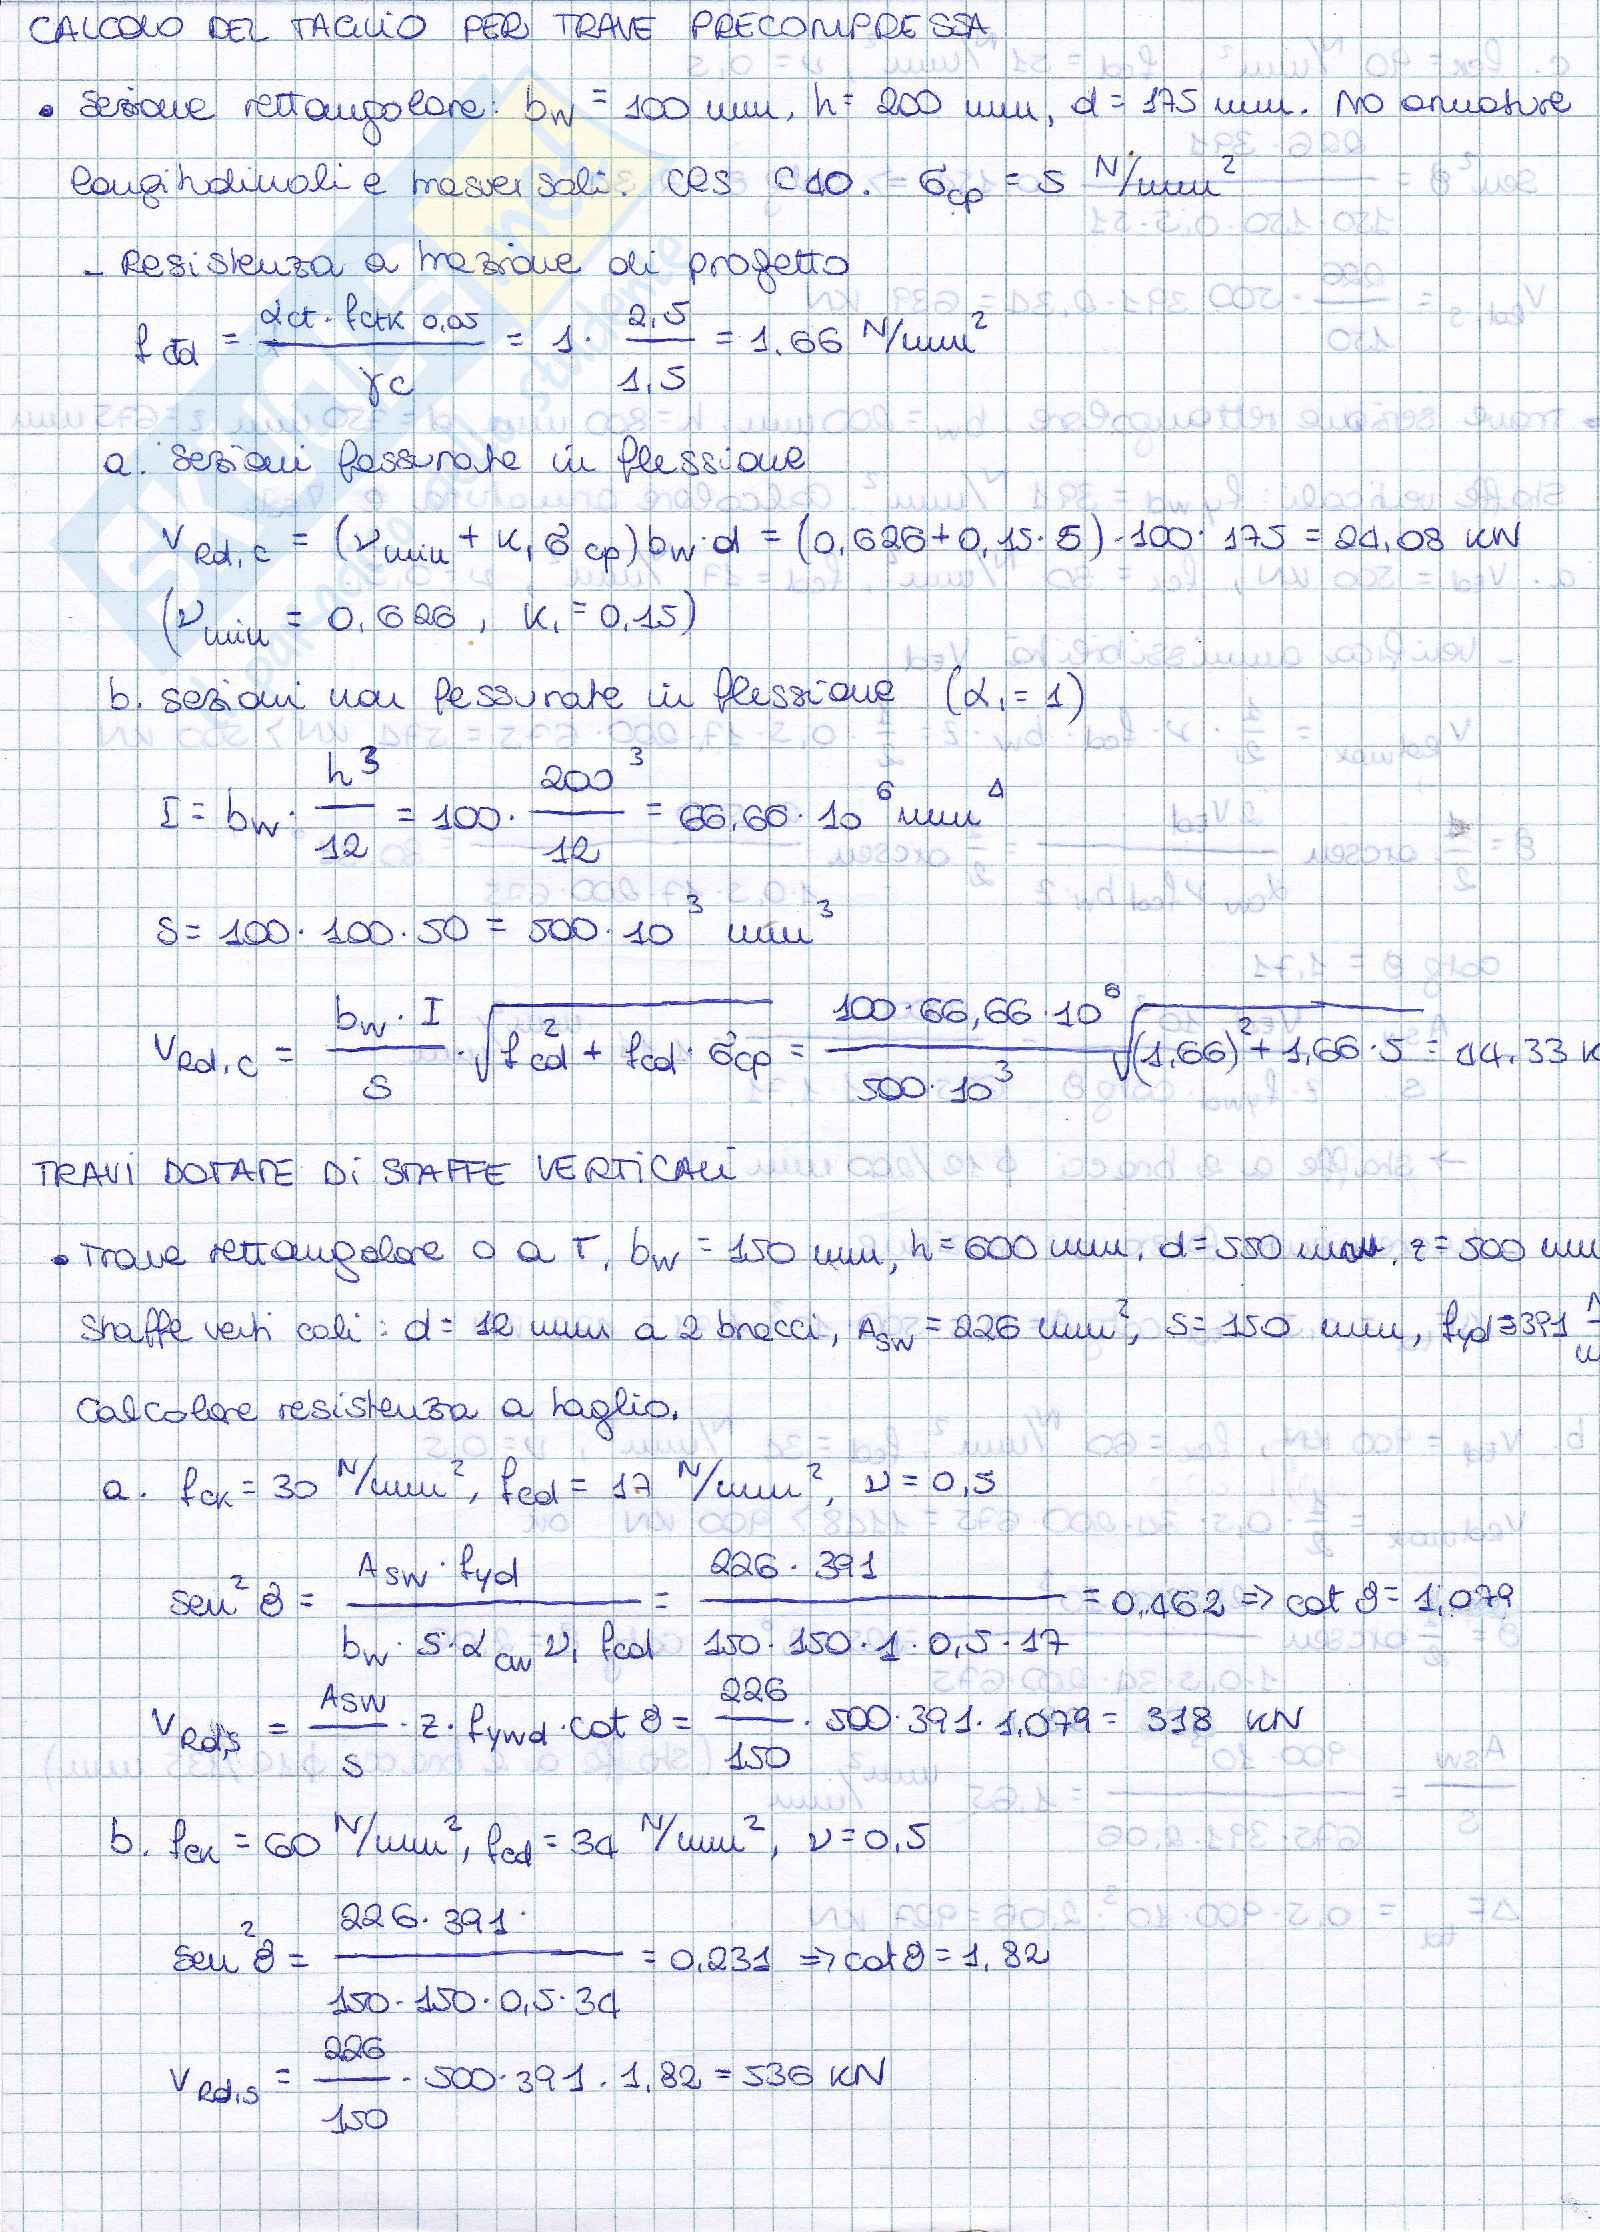 CALCOLO DEL TAGLIO PER TRAVE PRECOMPRESSA
• Sezione rettangolare: bw = 100 mm, h = 200 mm, d = 175 mm. No armature
longitudinali e trasversali. cls C40. σcp = 5 N/mm²
- Resistenza a trazione di progetto
fctd = αct · fctk 0,05 / γc = 1 · 2,5 / 1,5 = 1,66 N/mm²
a. sezioni fessurate in flessione
VRd,c = (νmin + k1 σcp) bw · d = (0,626 + 0,15 · 5) · 100 · 175 = 24,08 KN
(νmin = 0,626, k1 = 0,15)
b. sezioni non fessurate in flessione (α1 = 1)
I = bw · h³ / 12 = 100 · 200³ / 12 = 66,66 · 10⁶ mm⁴
S = 100 · 100 · 50 = 500 · 10³ mm³
VRd,c = bw · I / S · √(fcd² + fcd · σcp) = 100 · 66,66 · 10⁶ / 500 · 10³ √((1,66)² + 1,66 · 5) = 44,33 K
TRAVI DOTATE DI STAFFE VERTICALI
• Trave rettangolare o a T, bw = 150 mm, h = 600 mm, d = 550 mm, z = 500 mm
staffe verticali: d = 12 mm a 2 bracci, Asw = 226 mm², s = 150 mm, fyd = 391 N
Calcolare resistenza a taglio.
a. fck = 30 N/mm², fcd = 17 N/mm², ν = 0,5
sen²θ = Asw · fyd / bw · s · αcw ν1 fcd = 226 · 391 / 150 · 150 · 1 · 0,5 · 17 = 0,462 => cot θ = 1,079
VRd,s = Asw / s · z · fywd · cot θ = 226 / 150 · 500 · 391 · 1,079 = 318 KN
b. fck = 60 N/mm², fcd = 34 N/mm², ν = 0,5
sen²θ = 226 · 391 / 150 · 150 · 0,5 · 34 = 0,231 => cot θ = 1,82
VRd,s = 226 / 150 · 500 · 391 · 1,82 = 536 KN